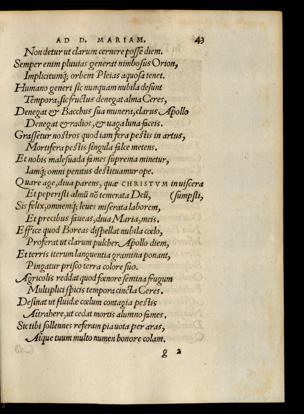 AD D. MARIAM. 43
Non detur ut clarum cernere posse diem.
Semper enim pluuias generat nimbosus Orion,
Implicitumq; orbem Pleias aquosa tenet.
Humano generi sic nunquam nubila desunt
Tempora, sic fructus denegat alma Ceres,
Denegat & Bacchus sua munera, clarus Apollo
Denegat & radios, & uaga luna faceis.
Grassetur nostros quod iam fera pestis in artus,
Mortifera pestis singula falce metens.
Et nobis malesuada fames suprema minetur,
Iamq; omni penitus destituamur ope.
Quare age, diua parens, quæ CHRISTVM in uiscera
Et peperisti almũ nõ temerata Deũ, (sumpsti,
Sis felix, omnemq; leues miserata laborem,
Et precibus faueas, diua Maria, meis.
Effice quod Boreas dispellat nubila cœlo,
Proferat ut clarum pulcher Apollo diem,
Et terris iterum languentia gramina ponant,
Pingatur prisco terra colore suo.
Agricolis reddat quod fœnore semina frugum
Multiplici spicis tempora cincta Ceres.
Desinat ut fluidæ cœlum contagia pestis
Attrahere, ut cedat mortis alumno fames.
Sic tibi sollennes referam pia uota per aras,
Atque tuum multo numen honore colam.
g 2